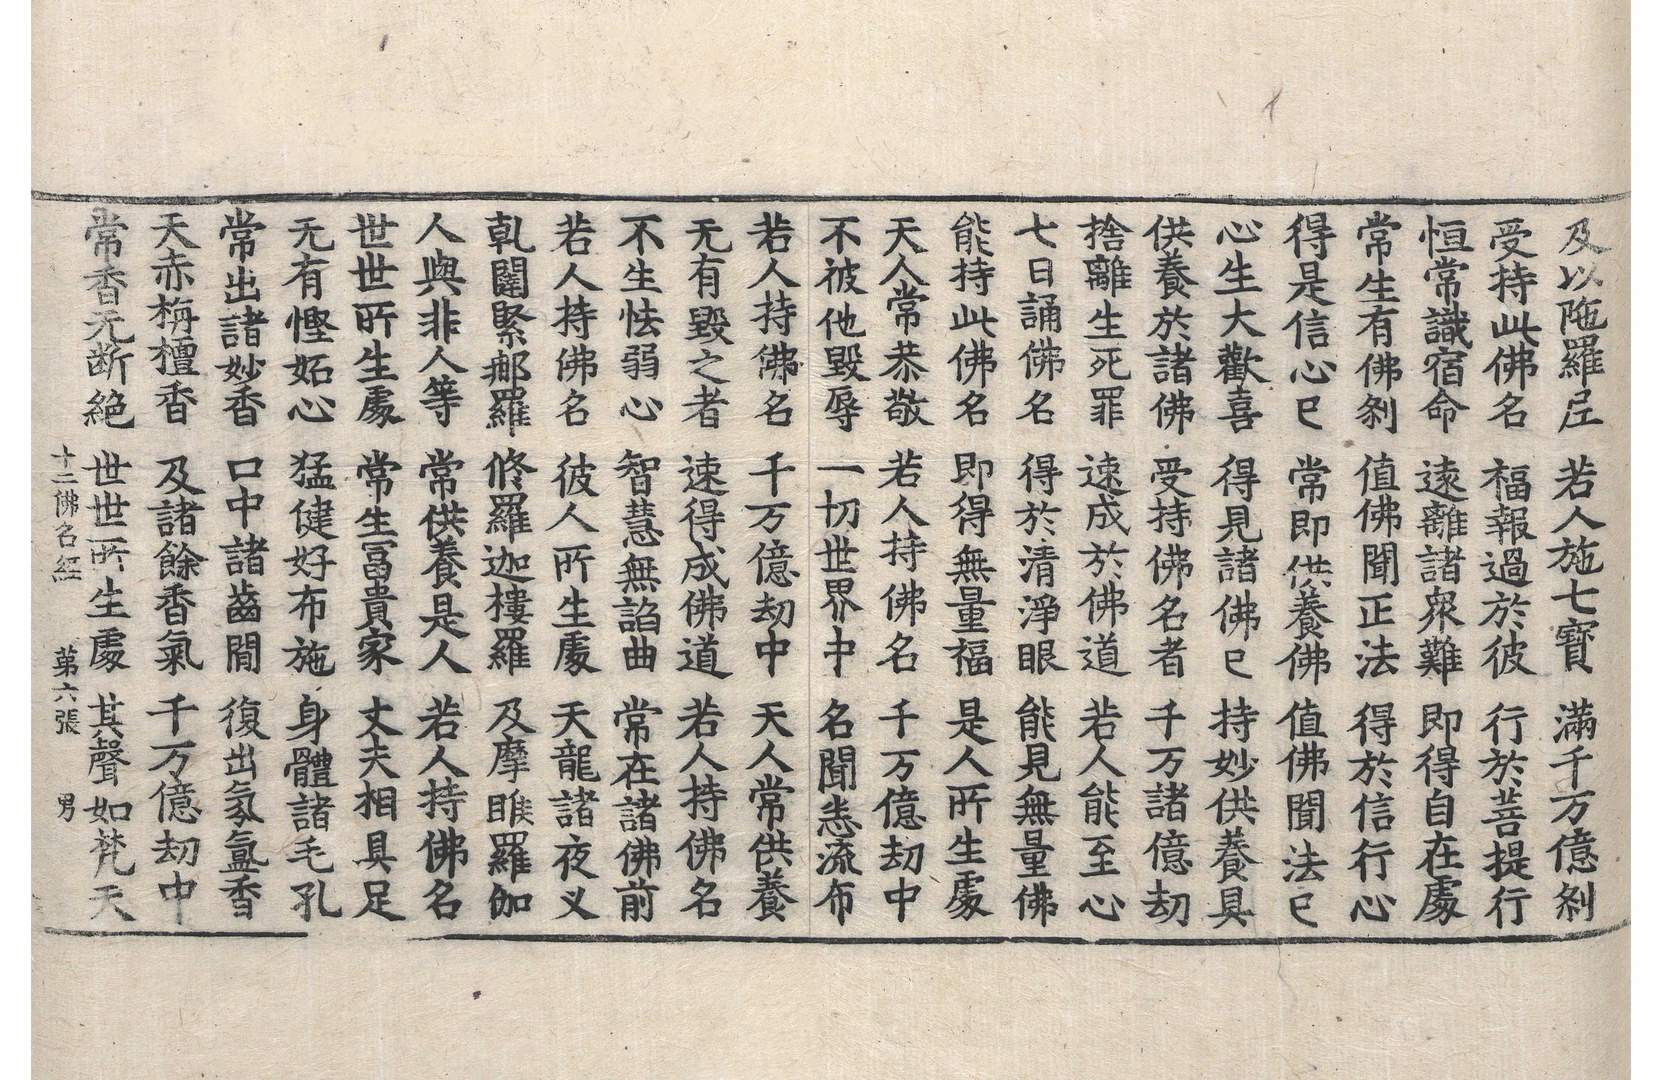 及以陁羅𡰱 若人施七寶 滿千万億剎
受持此佛名 福報過於彼 行於菩提行
恒常識宿命 遠離諸衆難 即得自在處
常生有佛剎 值佛聞正法 得於信行心
得是信心已 常即供養佛 值佛聞法已
心生大歡喜 得見諸佛已 持妙供養具
供養於諸佛 受持佛名者 千万諸億劫
捨離生死罪 速成於佛道 若人能至心
七日誦佛名 得於清淨眼 能見無量佛
能持此佛名 即得無量福 是人所生處
天人常恭敬 若人持佛名 千万億劫中
不被他毀辱 一切世界中 名聞悉流布
若人持佛名 千万億劫中 天人常供養
无有毀之者 速得成佛道 若人持佛名
不生怯弱心 智慧無諂曲 常在諸佛前
若人持佛名 彼人所生處 天龍諸夜叉
乹闥緊那羅 脩羅迦樓羅 及摩睺羅伽
人與非人等 常供養是人 若人持佛名
世世所生處 常生冨貴家 丈夫相具足
无有慳妬心 猛健好布施 身體諸毛孔
常出諸妙香 口中諸齒間 復出氛氳香
天赤栴檀香 及諸餘香氣 千万億劫中
常香无断絶 世世所生處 其聲如梵天
十二佛名經 第六張 男